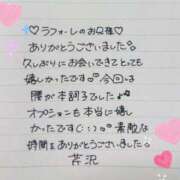 ♡ラフォーレのお口様♡
ありがとうございました。
久しぶりにお会いできてとっても
嬉しかったです♡今回は
腰が本調子でした♪
オプションも本当に嬉し
かったです(:;) 素敵な
時間をありがとうございました。
芹沢